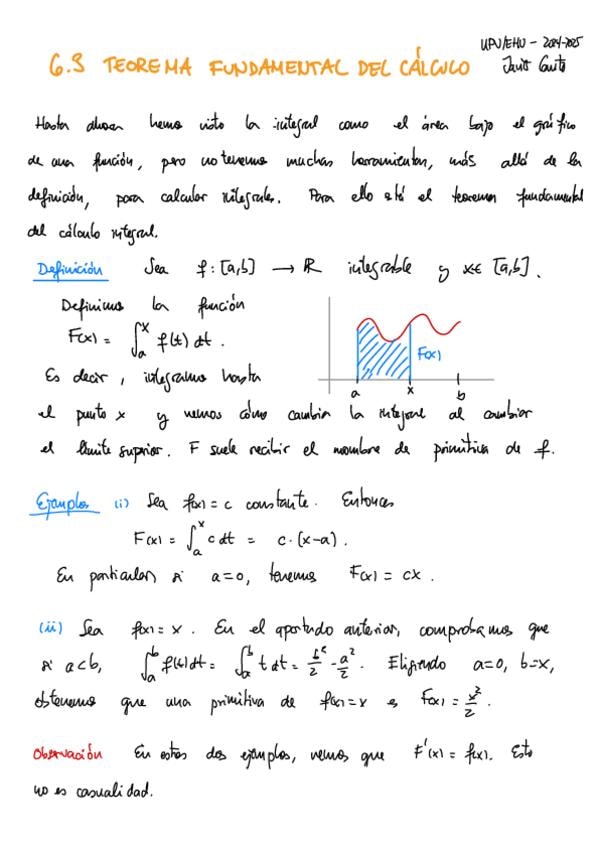 UPV/EHU - 2024-2025
6.3 TEOREMA FUNDAMENTAL DEL CÁLCULO
Hasta ahora hemos visto la integral como el área bajo el gráfico
de una función, pero no tenemos muchas herramientas, más allá de la
definición, para calcular integrales. Para ello está el teorema fundamental
del cálculo integral.
Definición Sea f: [a,b] → ℝ integrable y x∈ [a,b].
Definimos la función
F(x) = ∫_a^x f(t) dt.
F(x)
a x b
Es decir, integramos hasta
el punto x y vemos cómo cambia la integral al cambiar
el límite superior. F suele recibir el nombre de primitiva de f.
Ejemplos (i) Sea f(x) = c constante. Entonces
F(x) = ∫_a^x c dt = c·(x-a).
En particular, si a=0, tenemos F(x) = cx.
(ii) Sea f(x) = x. En el apartado anterior, comprobamos que
si a<b, ∫_a^b f(t) dt = ∫_a^b t dt = b²/2 - a²/2. Eligiendo a=0, b=x,
obtenemos que una primitiva de f(x)=x es F(x) = x²/2.
Observación En estos dos ejemplos, vemos que F'(x) = f(x). Esto
no es casualidad.